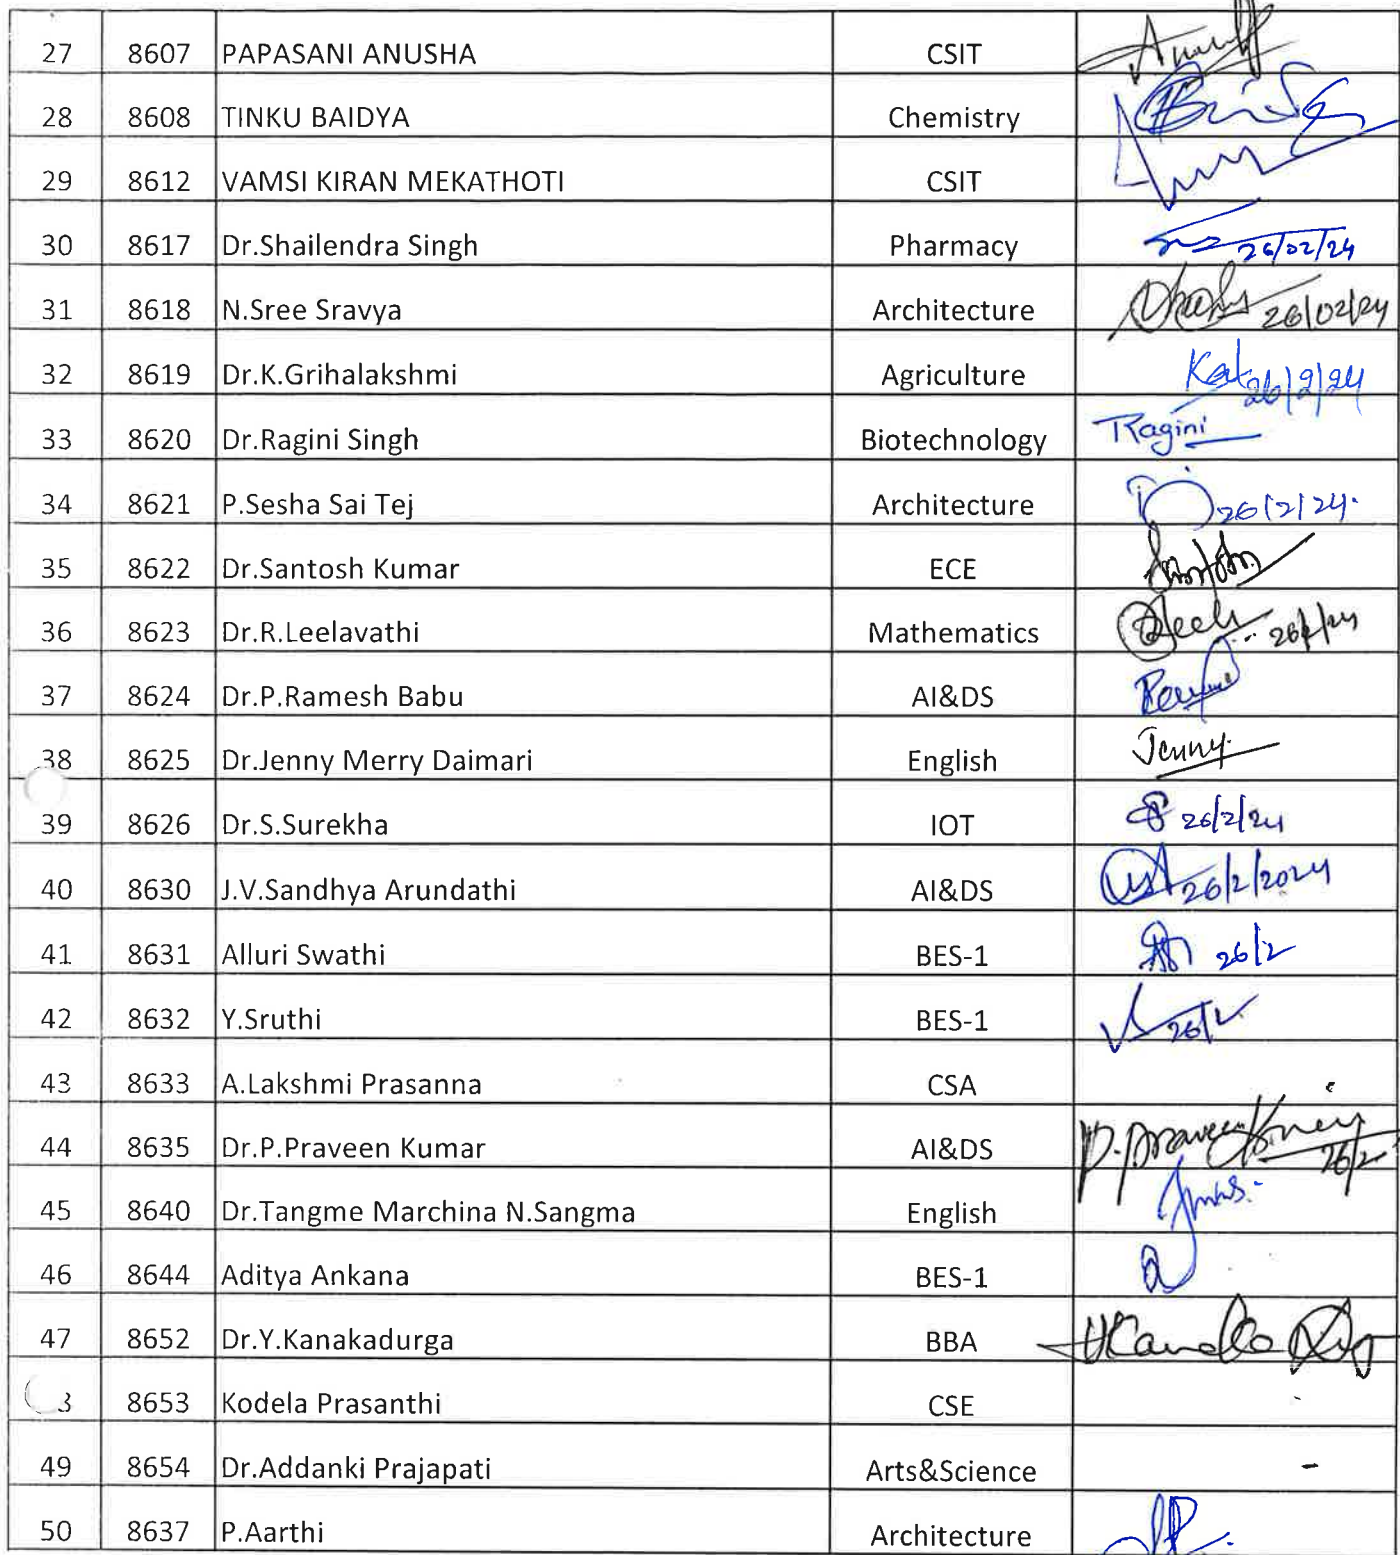 27 8607 PAPASANI ANUSHA CSIT
28 8608 TINKU BAIDYA Chemistry
29 8612 VAMSI KIRAN MEKATHOTI CSIT
30 8617 Dr.Shailendra Singh Pharmacy 26/02/24
31 8618 N.Sree Sravya Architecture 26/02/24
32 8619 Dr.K.Grihalakshmi Agriculture 26/2/24
33 8620 Dr.Ragini Singh Biotechnology Ragini
34 8621 P.Sesha Sai Tej Architecture 26/2/24.
35 8622 Dr.Santosh Kumar ECE
36 8623 Dr.R.Leelavathi Mathematics 26/2/24
37 8624 Dr.P.Ramesh Babu AI&DS
38 8625 Dr.Jenny Merry Daimari English Jenny
39 8626 Dr.S.Surekha IOT 26/2/24
40 8630 J.V.Sandhya Arundathi AI&DS 26/2/2024
41 8631 Alluri Swathi BES-1 26/2
42 8632 Y.Sruthi BES-1 26/2
43 8633 A.Lakshmi Prasanna CSA
44 8635 Dr.P.Praveen Kumar AI&DS P.Praveen Kumar 26/2
45 8640 Dr.Tangme Marchina N.Sangma English
46 8644 Aditya Ankana BES-1
47 8652 Dr.Y.Kanakadurga BBA
8653 Kodela Prasanthi CSE -
49 8654 Dr.Addanki Prajapati Arts&Science -
50 8637 P.Aarthi Architecture